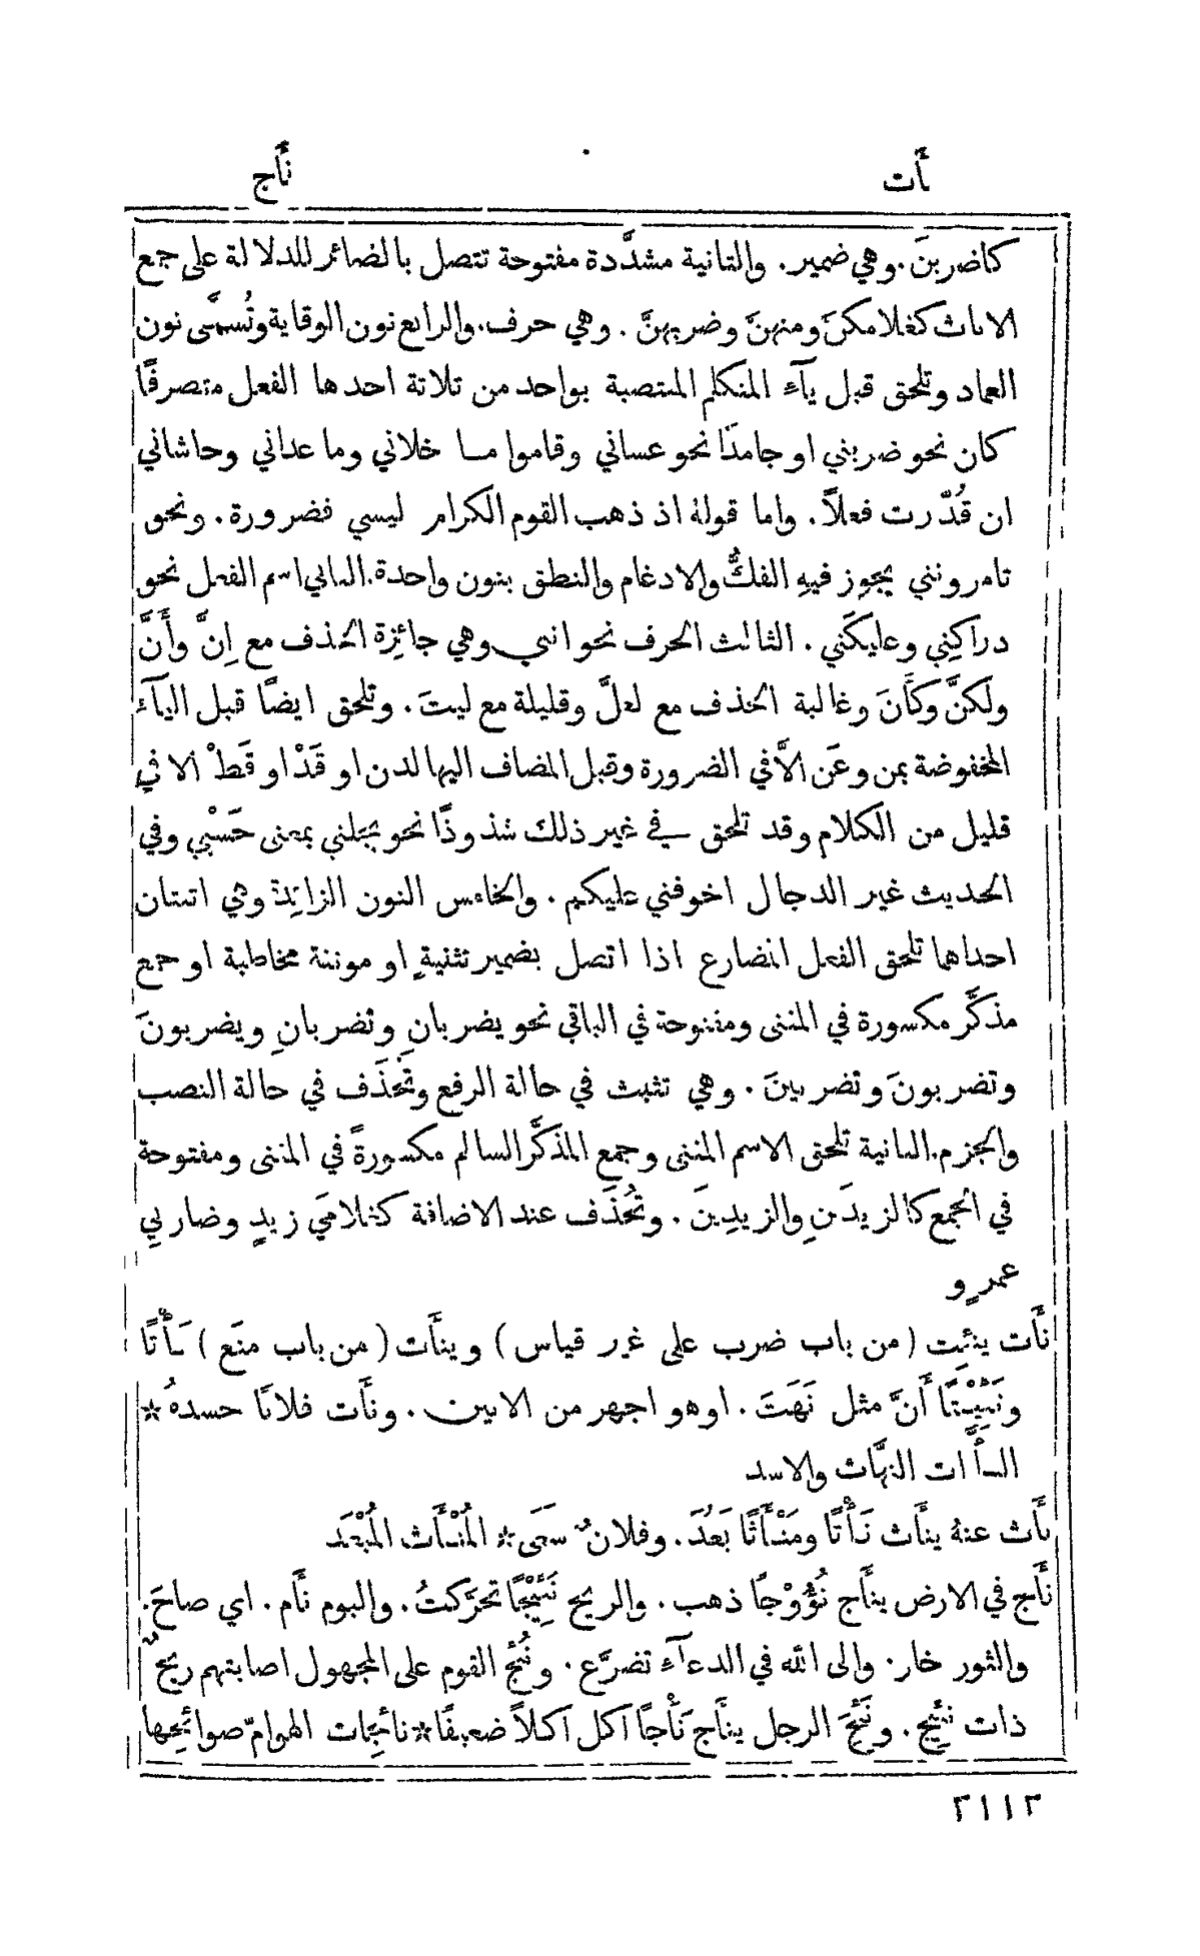 نأت
نأج
كاضربنَ. وهي ضمير. والثانية مشدَّدة مفتوحة تتصل بالضمائر للدلالة على جمع
الاناث كغلامكنَّ ومنهنَّ وضربهنَّ. وهي حرف. والرابع نون الوقاية وتُسمَّى نون
العماد وتلحق قبل يآء المتكلم المنتصبة بواحد من ثلاثة احدها الفعل متصرفًا
كان نحو ضربني او جامدًا نحو عساني وقاموا ما خلاني وما عداني وحاشاني
ان قُدّرت فعلاً. واما قولهُ اذ ذهب القوم الكرام ليسي فضرورة. ونحو
تامرونني يجوز فيهِ الفكُّ والادغام والنطق بنون واحدة. الثاني اسم الفعل نحو
دراكِني وعليكَني. الثالث الحرف نحو انني وهي جائزة الحذف مع اِنَّ وأَنَّ
ولكنَّ وكأَنَّ وغالبة الحذف مع لعلَّ وقليلة مع ليتَ. وتلحق ايضًا قبل اليآء
المخفوضة بمن وعَن الاَّ في الضرورة وقبل المضاف اليها لدن او قَدْ او قَطْ الا في
قليل من الكلام وقد تلحق في غير ذلك شذوذًا نحو بجلني بمعنى حَسْبي وفي
الحديث غير الدجال اخوفني عليكم. والخامس النون الزائدة وهي اثنتان
احداها تلحق الفعل المضارع اذا اتصل بضمير تثنيةٍ او مونثة مخاطبة او جمع
مذكَّر مكسورة في المثنى ومفتوحة في الباقي نحو يضربانِ وتضربانِ ويضربونَ
وتضربونَ وتضربينَ. وهي تثبث في حالة الرفع وتُحذَف في حالة النصب
والجزم. الثانية تلحق الاسم المثنى وجمع المذكَّر السالم مكسورةً في المثنى ومفتوحة
في الجمع كالزيدَينِ والزيدِينَ. وتُحذَف عند الاضافة كغلامَي زيدٍ وضاربي
عمرٍو
نأَت ينئِت (من باب ضرب على غير قياس) وينأَت (من باب منَع) نَأْتًا
ونَئِيْتًا أَنَّ مثل نَهَتَ. او هو اجهر من الانين. ونأَت فلانًا حسدهُ *
النأَّات النهَّات والاسد
نأَث عنهُ ينأَث نَأْثًا ومَنْأَثًا بَعُدَ. وفلانٌ سَعَى * المُنْأَث المُبْعَد
نأَج في الارض ينأَج نُؤُوْجًا ذهب. والريح نَئِيْجًا تحرَّكتُ. والبوم نأَم. اي صاحَ.
والثور خار. والى الله في الدعآء تضرَّع. ونُئِج القوم على المجهول اصابتهم ريحٌ
ذات نَئِيج. ونَئِجَ الرجل ينأَج نَأْجًا اكل اكلاً ضعيفًا * نائجات الهوامّ صوائحها
٢١١٢